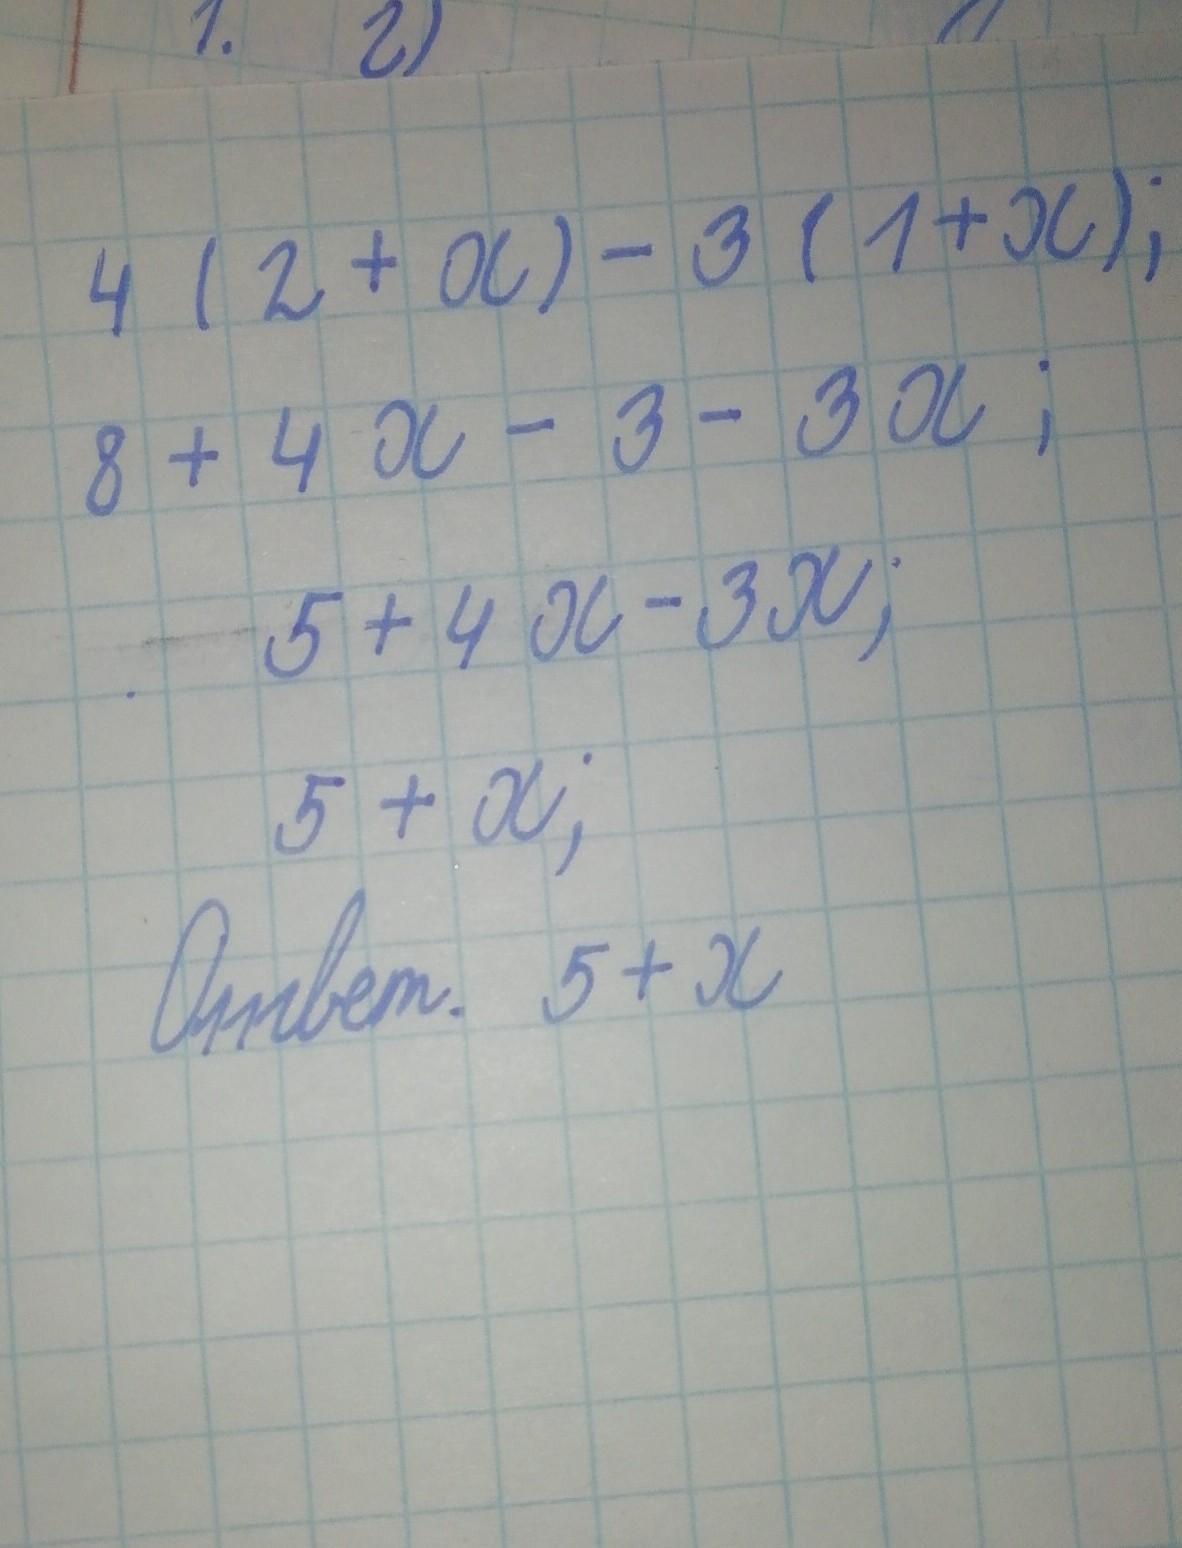 1. 2)
4(2+x)-3(1+x);
8+4x-3-3x;
5+4x-3x;
5+x;
Ответ. 5+x